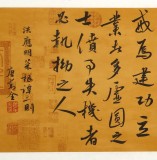 為建功立
業者多虛圓之
士僨事失機者
必執拗之人
洪應明菜根譚三則